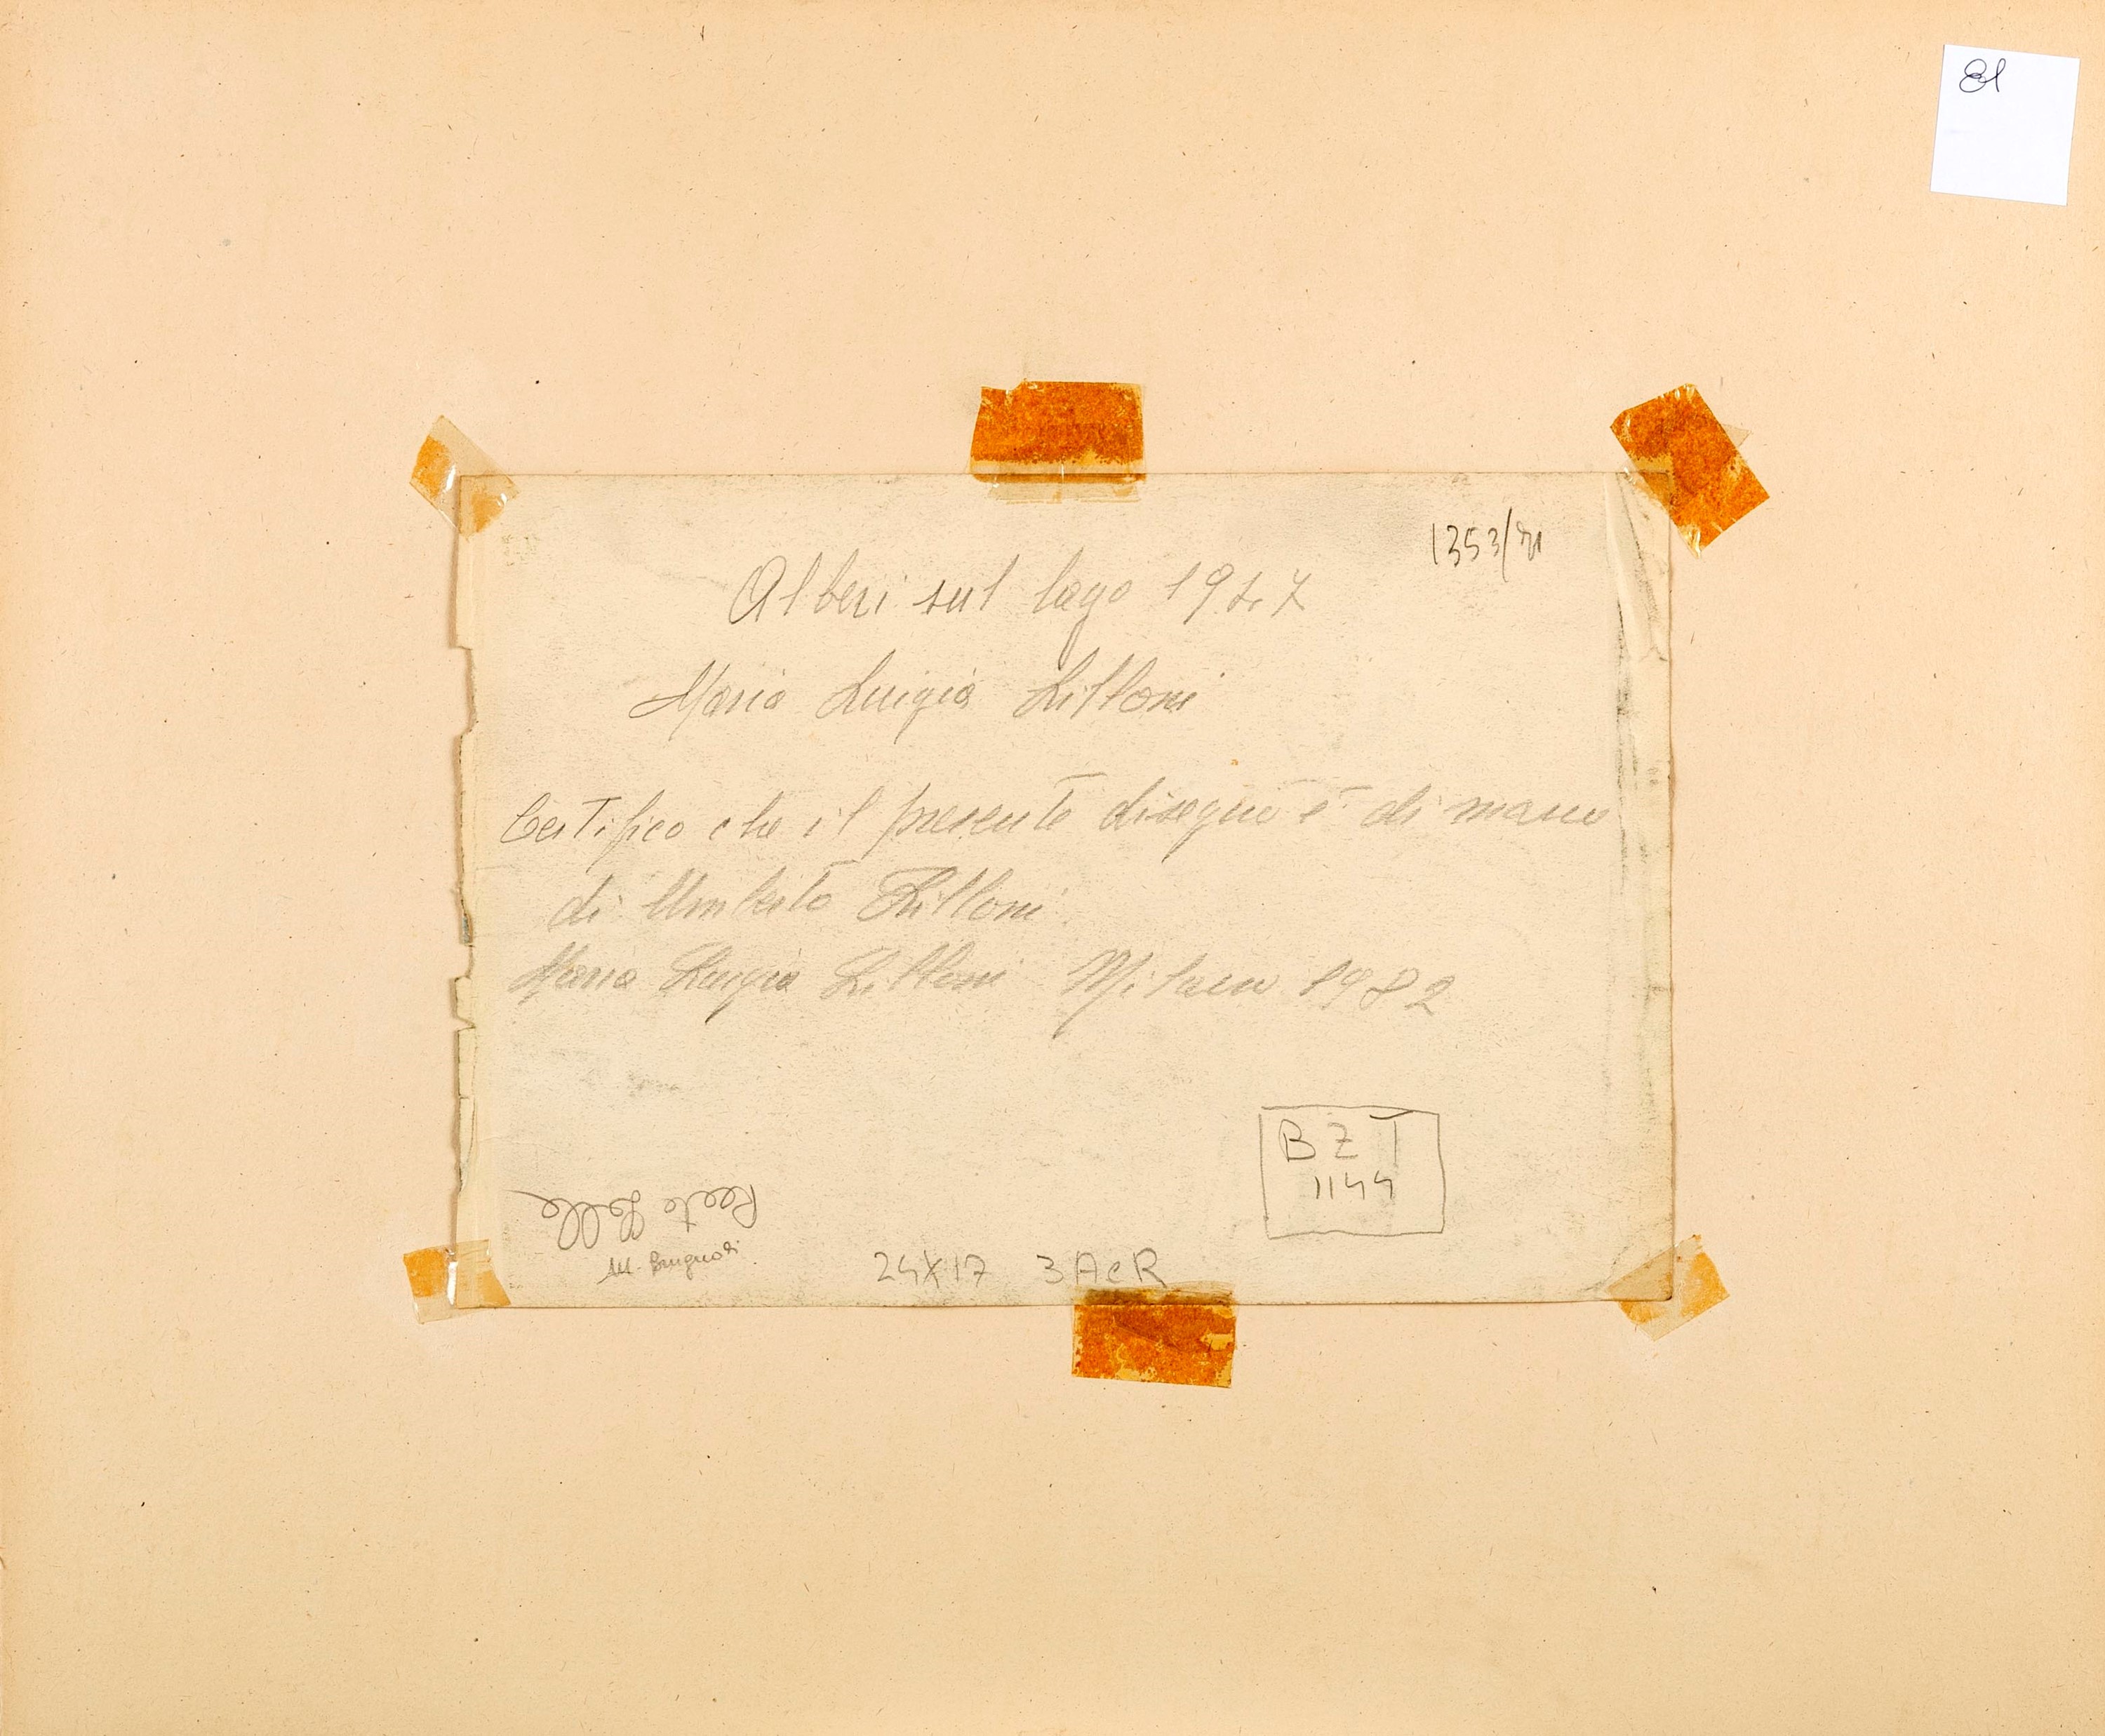 81
1353/
Alberi sul lago 1947
Maria Luigia Lilloni
Certifico che il presente disegno è di mano
di Umberto Lilloni
Maria Luigia Lilloni Milano 1982
BZT
1144
24X17 3AeR